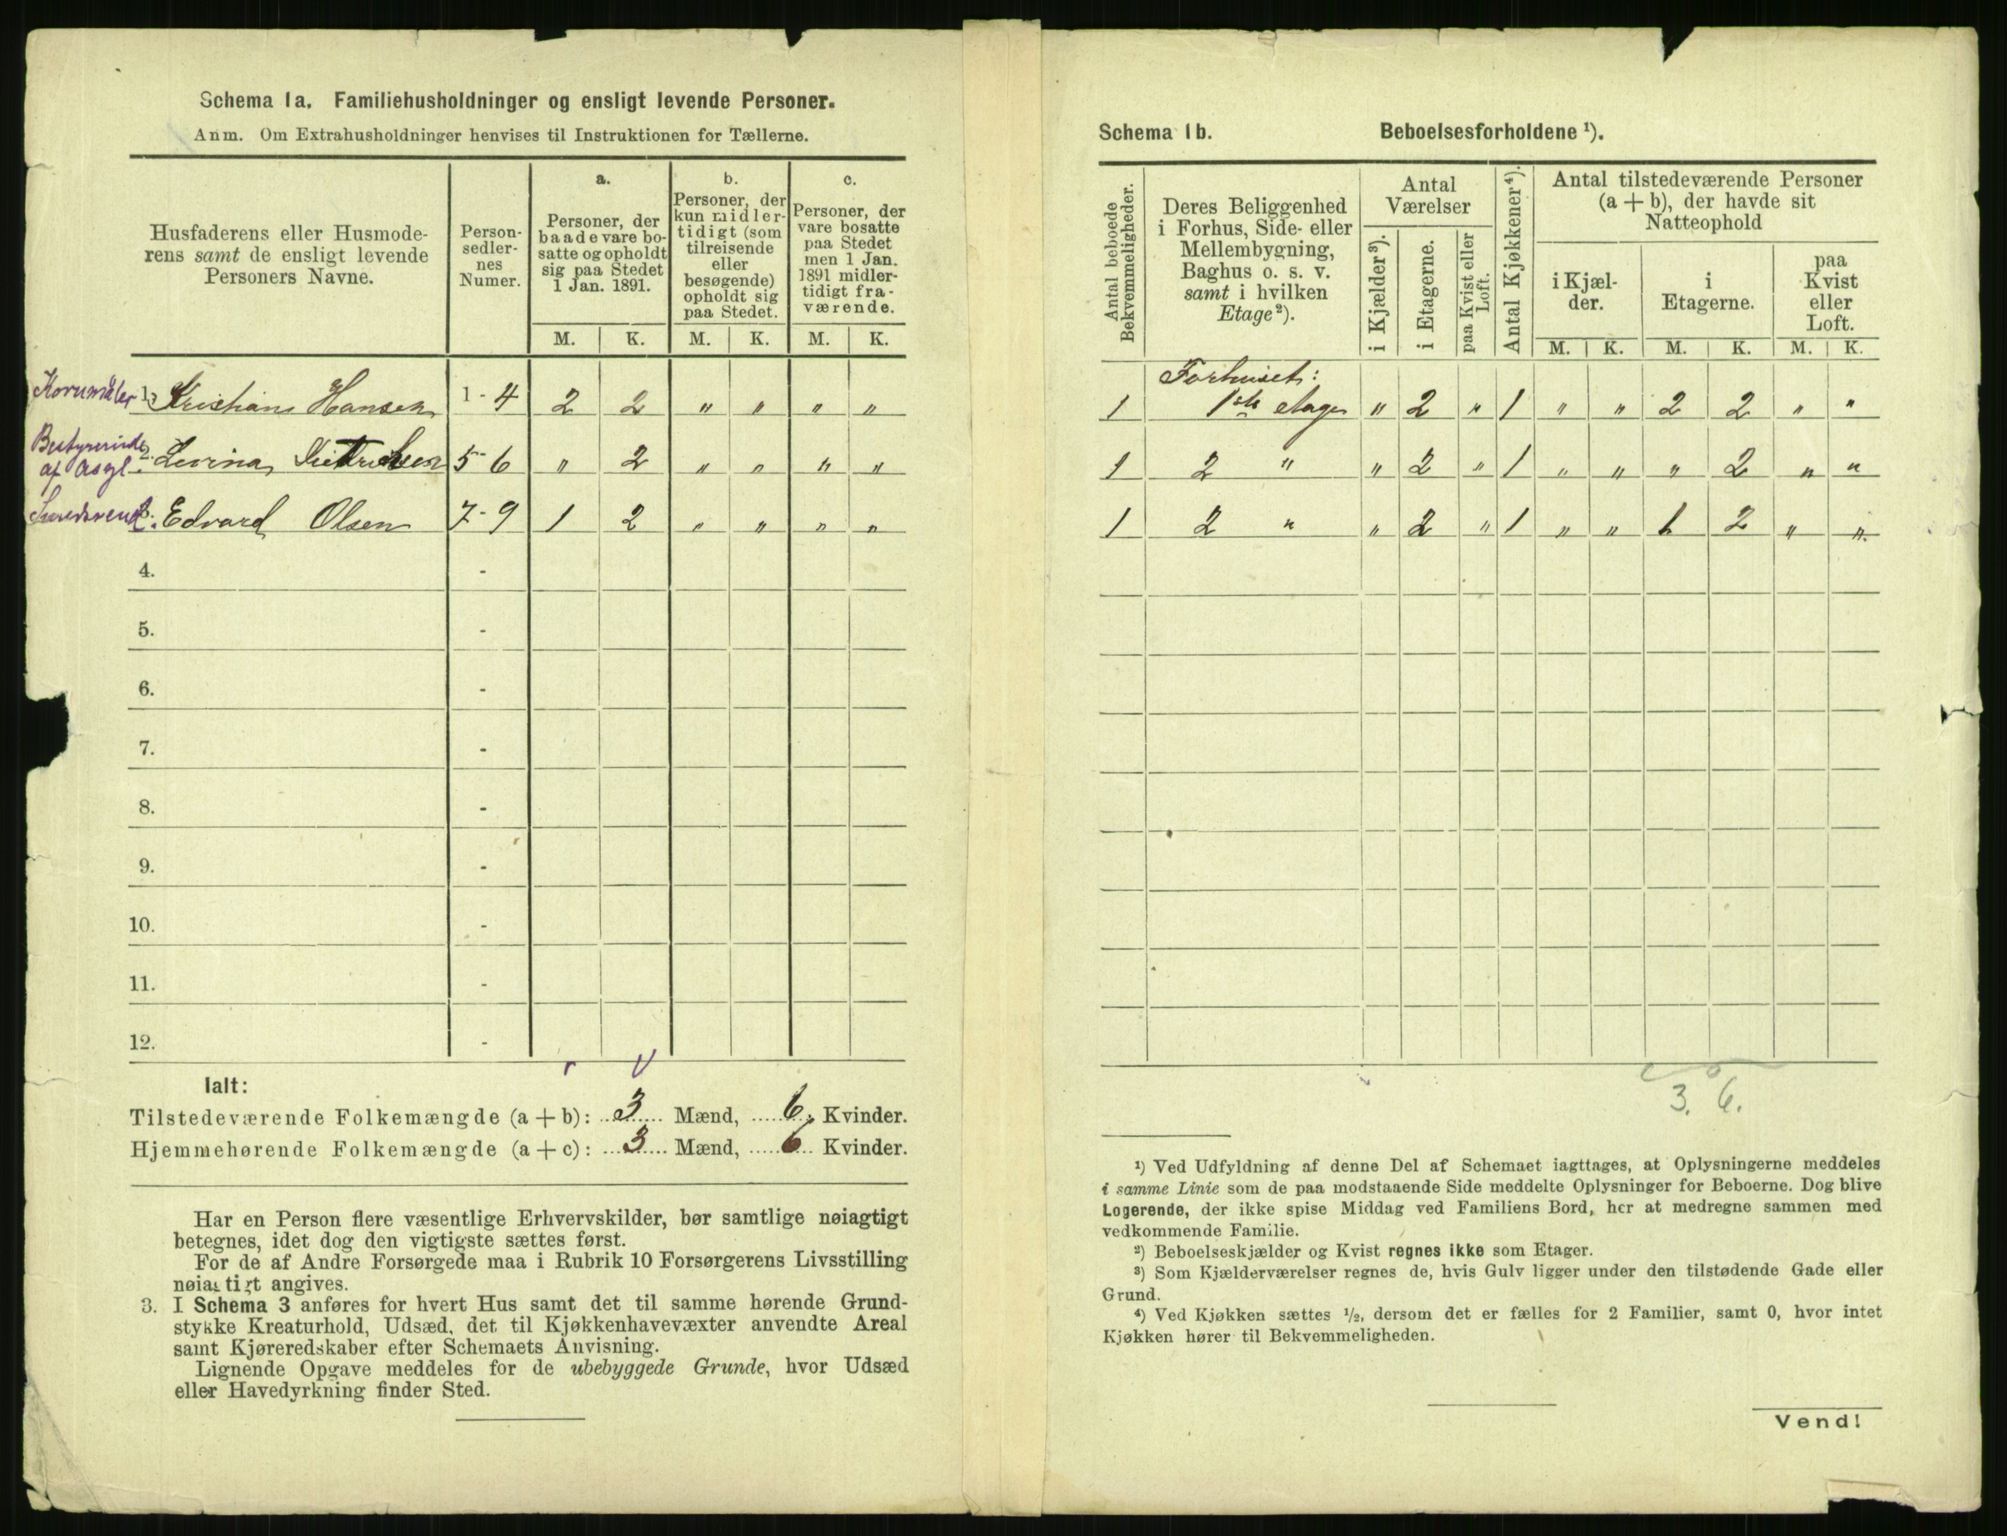 Schema 1a. Familiehusholdninger og ensligt levende Personer.
Anm. Om Extrahusholdninger henvises til Instruktionen for Tællerne.
Husfaderens eller Husmode-
rens samt de ensligt levende
Personers Navne.
Person-
sedler-
nes
Numer.
a.
Personer, der
baade vare bo-
satte og opholdt
sig paa Stedet
1 Jan. 1891.
b.
Personer, der
kun midler-
tidigt (som
tilreisende
eller
besøgende)
opholdt sig
paa Stedet.
c.
Personer, der
vare bosatte
paa Stedet
men 1 Jan.
1891 midler-
tidigt fra-
værende.
M. K. M. K. M. K.
Kornmåler 1. Kristian Hansen 1-4 2 2 " " " "
Bestyrerinde
af Asyl 2. Lovina 5-6 " 2 " " " "
3. Edvard Olsen 7-9 1 2 " " " "
4. -
5. -
6. -
7. -
8. -
9. -
10. -
11. -
12. -
Ialt:
Tilstedeværende Folkemængde (a + b): 3 Mænd, 6 Kvinder.
Hjemmehørende Folkemængde (a + c): 3 Mænd, 6 Kvinder.
Har en Person flere væsentlige Erhvervskilder, bør samtlige nøiagtigt
betegnes, idet dog den vigtigste sættes først.
For de af Andre Forsørgede maa i Rubrik 10 Forsørgerens Livsstilling
nøiagtigt angives.
3. I Schema 3 anføres for hvert Hus samt det til samme hørende Grund-
stykke Kreaturhold, Udsæd, det til Kjøkkenhavevæxter anvendte Areal
samt Kjøreredskaber efter Schemaets Anvisning.
Lignende Opgave meddeles for de ubebyggede Grunde, hvor Udsæd
eller Havedyrkning finder Sted.
Schema 1b. Beboelsesforholdene ¹).
Antal beboede
Bekvemmeligheder.
Deres Beliggenhed
i Forhus, Side- eller
Mellembygning,
Baghus o. s. v.
samt i hvilken
Etage²).
Antal
Værelser
i Kjælder³).
i Etagerne.
paa Kvist eller
Loft.
Antal Kjøkkener⁴).
Antal tilstedeværende Personer
(a + b), der havde sit
Natteophold
i Kjæl-
der.
i
Etagerne.
paa
Kvist
eller
Loft.
M. K. M. K. M. K.
Forhuset:
1 1ste etage " 2 " 1 " " 2 2 " "
1 2 " " 2 " 1 " " " 2 " "
1 2 " " 2 " 1 " " 1 2 " "
3. 6.
¹) Ved Udfyldning af denne Del af Schemaet iagttages, at Oplysningerne meddeles
i samme Linie som de paa modstaaende Side meddelte Oplysninger for Beboerne. Dog blive
Logerende, der ikke spise Middag ved Familiens Bord, her at medregne sammen med
vedkommende Familie.
²) Beboelseskjælder og Kvist regnes ikke som Etager.
³) Som Kjælderværelser regnes de, hvis Gulv ligger under den tilstødende Gade eller
Grund.
⁴) Ved Kjøkken sættes ½, dersom det er fælles for 2 Familier, samt 0, hvor intet
Kjøkken hører til Bekvemmeligheden.
Vend!